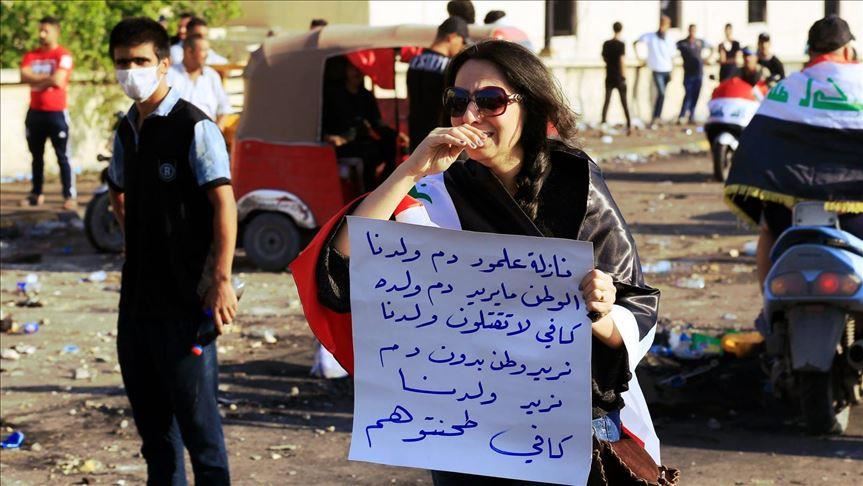 نازلة علمود دم ولدنا
الوطن مايريد دم ولده
كافي لا تقتلون ولدنا
نريد وطن بدون دم
نريد ولدنا
كافي طحنتوهم